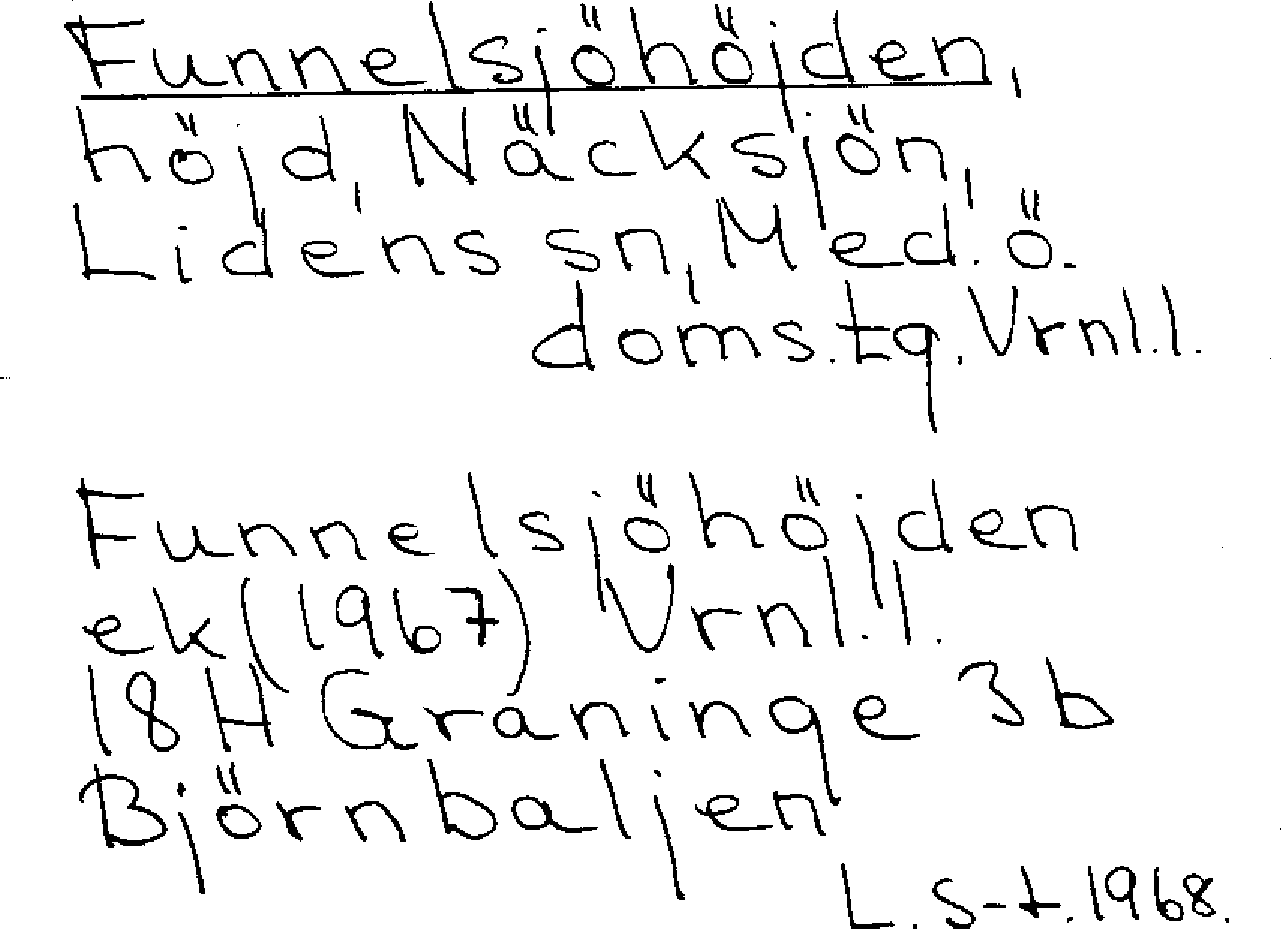 Funnelsjöhöjden,
höjd, Näcksjön,
Lidens sn, Med. ö.
doms.tg. Vrnl.l.
Funnelsjöhöjden
ek (1967) Vrnl.l.
18H Graninge 3b
Björnbaljen
L. S-t. 1968.